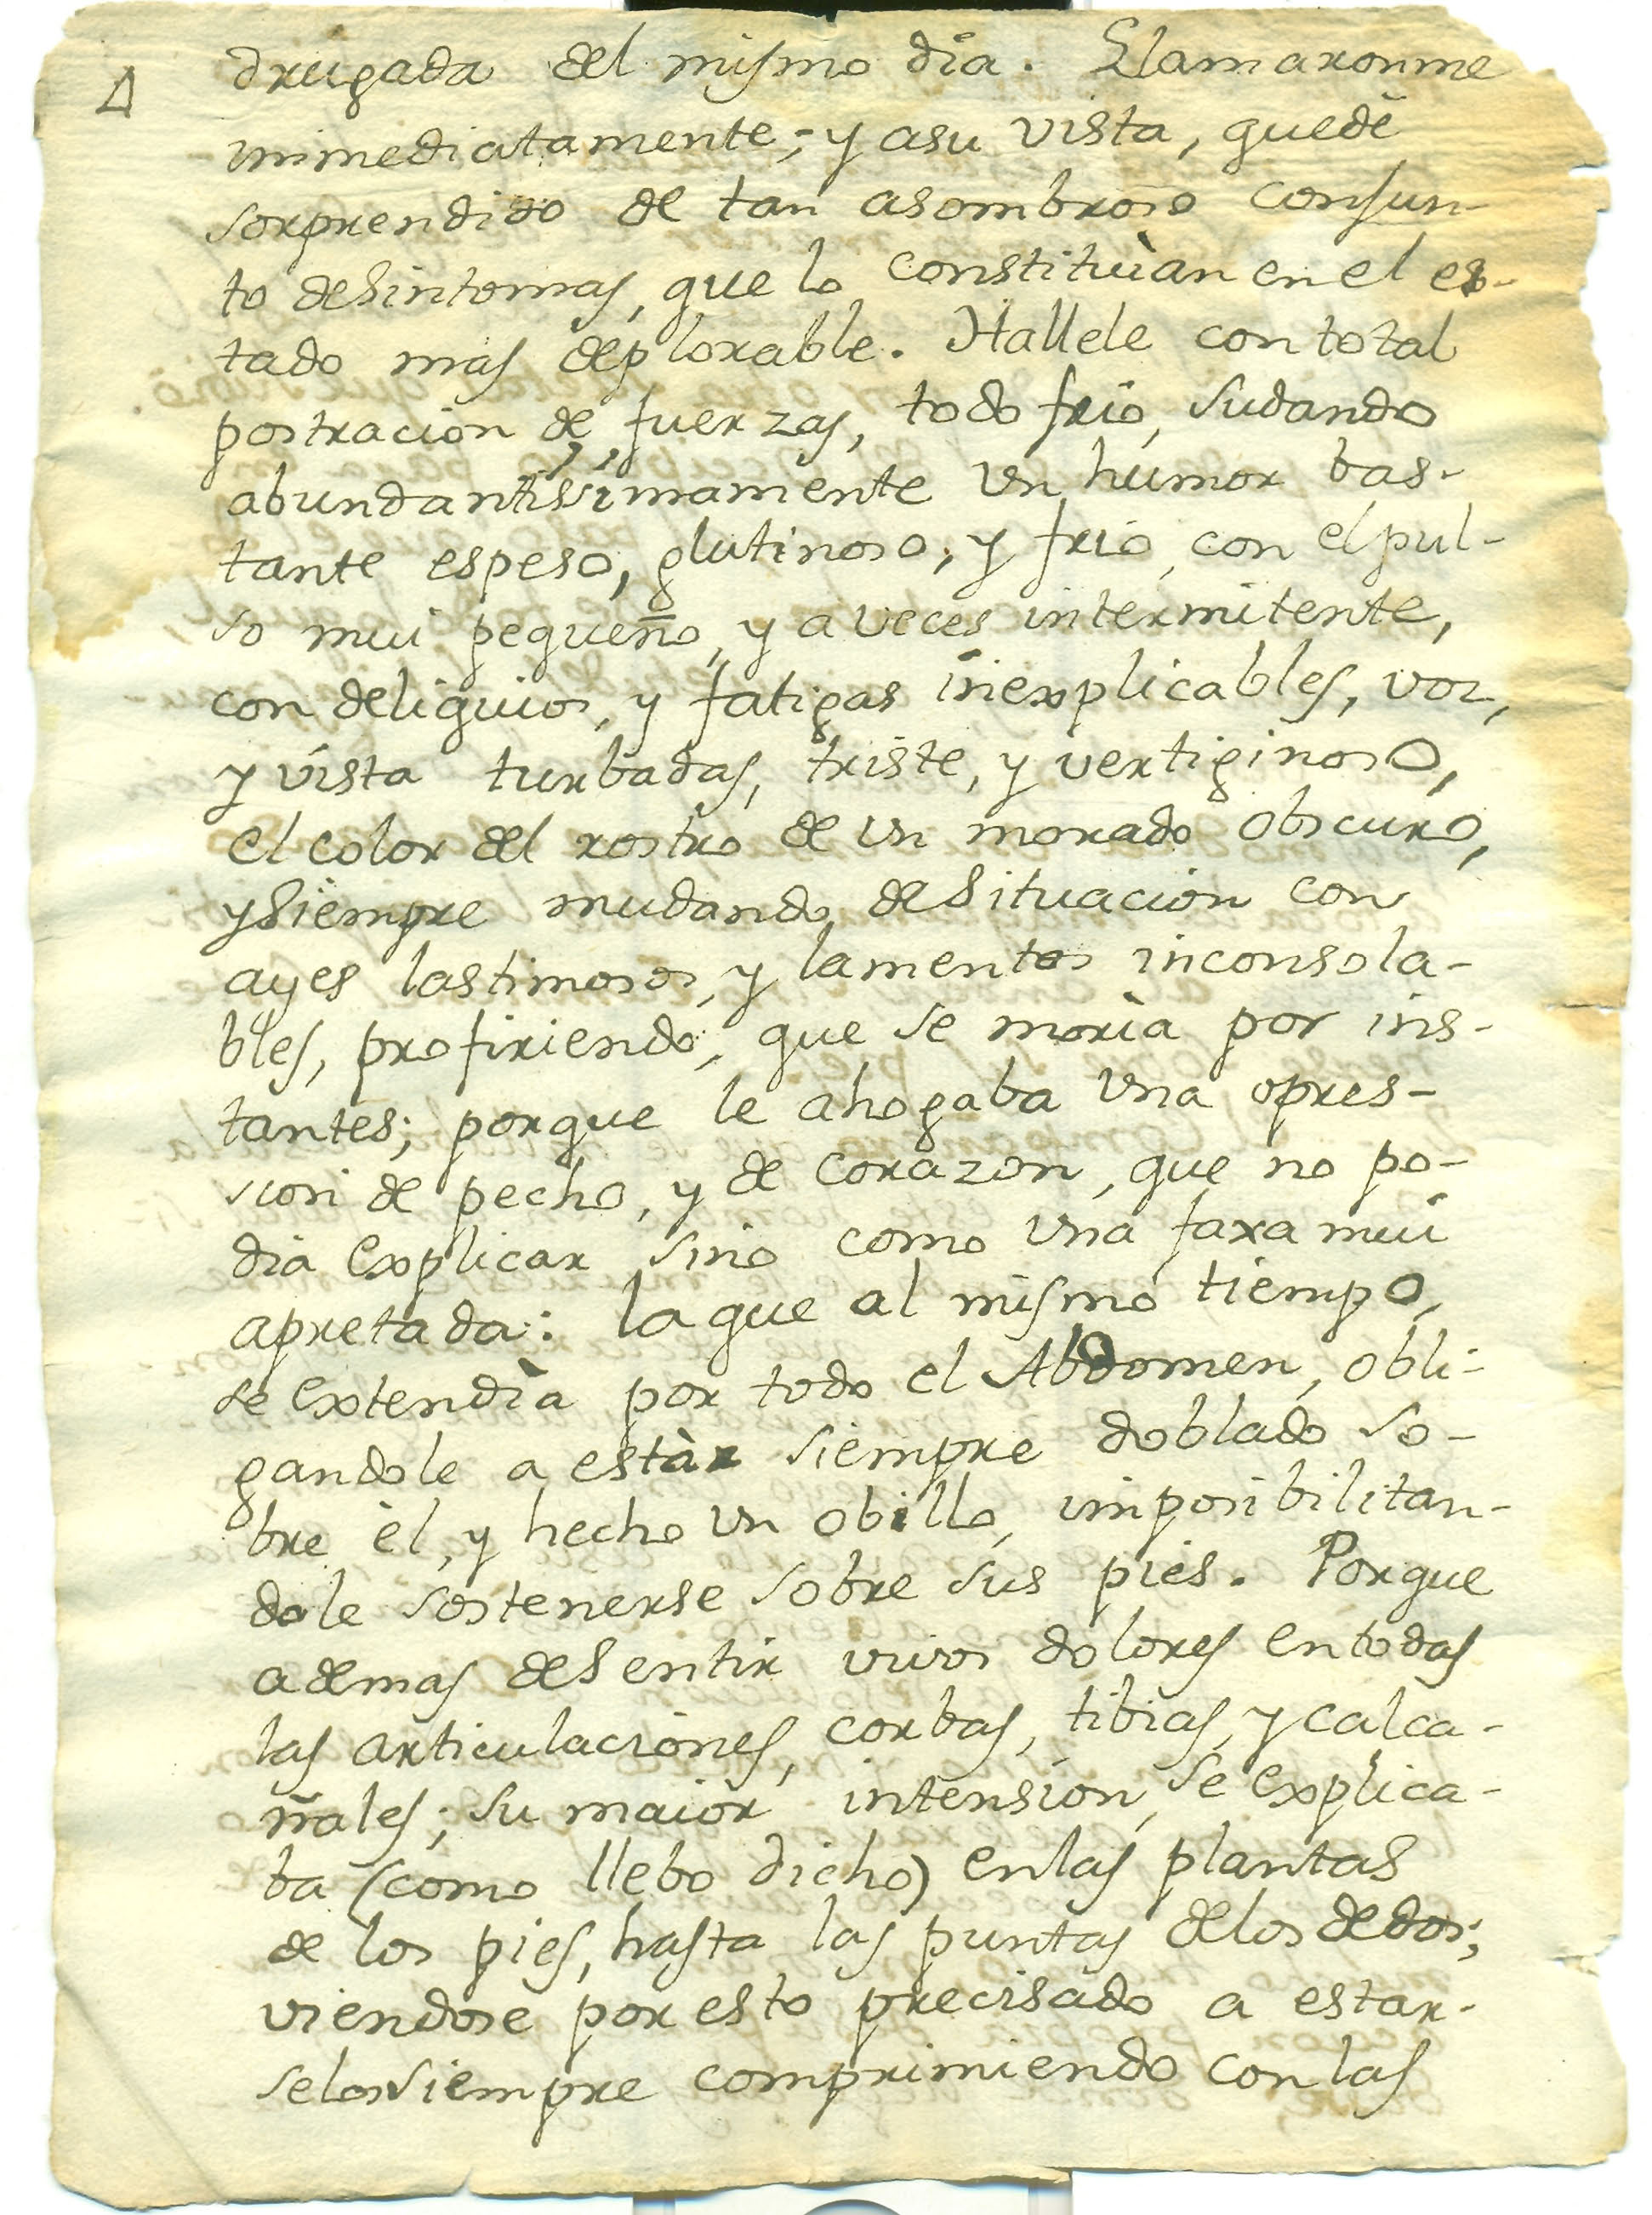 4
drugada del mismo dia. Llamaronme
immediatamente; y asu vista, quedè
sorprendido de tan asombroso conjun-
to desintomas, que lo constituìan en el es-
tado mas deplorable. Hallele con total
postracion de fuerzas, todo frio, sudando
abundantissimamente un humor bas-
tante espeso, glutinoso, y frio, con el pul-
so mui pequeño, y a veces intermitente,
con deliquios, y fatigas inexplicables, voz,
y vista turbadas, triste, y vertiginoso,
el color del rostro de un morado obscuro,
y siempre mudando de situacion con
ayes lastimosos, y lamentos inconsola-
bles, profiriendo, que se morìa por ins-
tantes; porque le ahogaba una opres-
sion de pecho, y de corazon, que no po-
dia explicar sino como una faxa mui
apretada: la que al mismo tiempo,
se extendìa por todo el Abdomen, obli-
gandole a estàr siempre doblado so-
bre èl, y hecho un obillo, imposibilitan-
dole sostenerse sobre sus pies. Porque
ademas de sentir vivos dolores en todas
las articulaciones, corbas, tibias, y calca-
ñales; su maior intension, se explica-
ba (como llebo dicho) en las plantas
de los pies, hasta las puntas de los dedos;
viendose por esto precisado a estar-
selos siempre comprimiendo con las